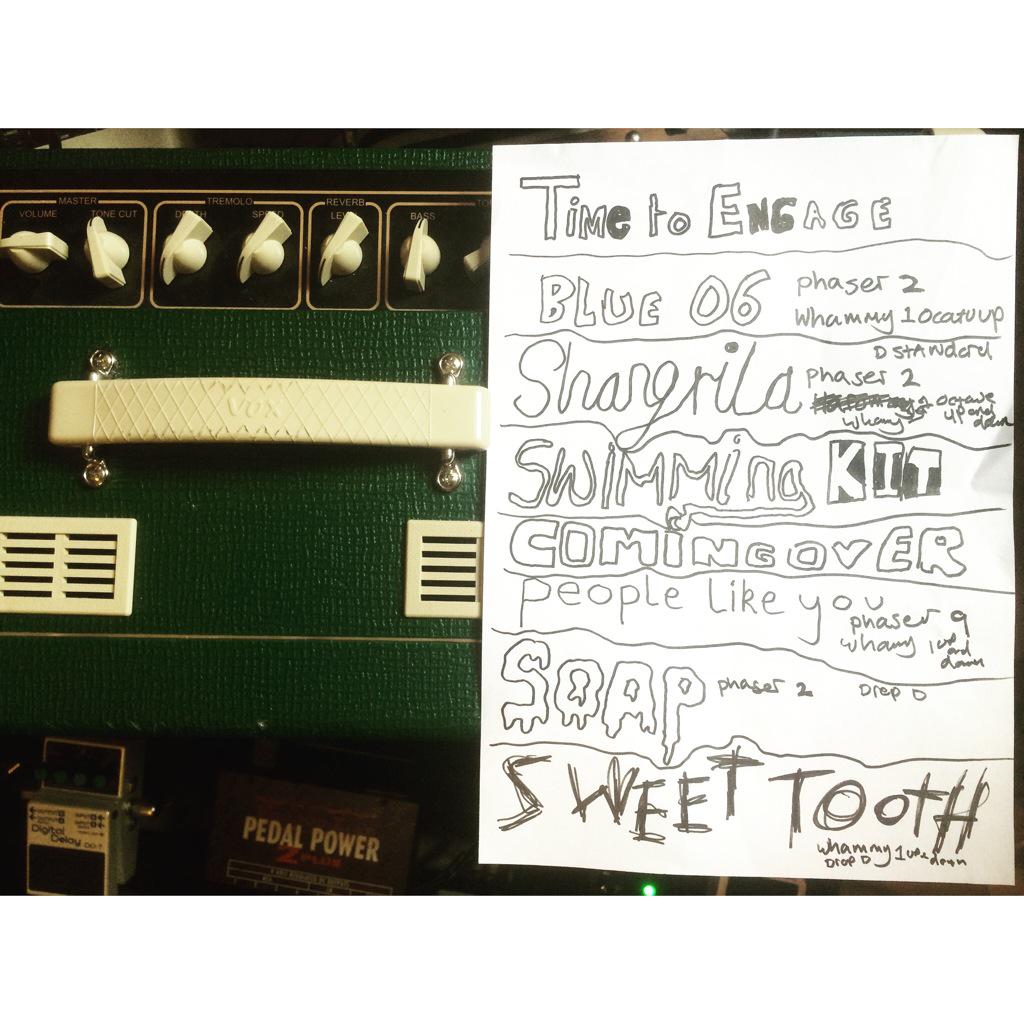 MASTER
VOLUME TONE CUT
TREMOLO
DEPTH SPEED
REVERB
LEVEL
BASS
VOX
Digital
Delay DD-7
PEDAL POWER
2 PLUS
TIME to ENGAGE
BLUE 06
phaser 2
whammy 1 ocatv up
D STANDard
Shangrila
phaser 2
whamy
octave
up and
down
SWIMMING KIT
COMING OVER
people like you
phaser 9
whamy 1 up
and
down
SOAP phaser 2 Drop D
SWEET TOOTH
whammy 1 up + down
DROP D